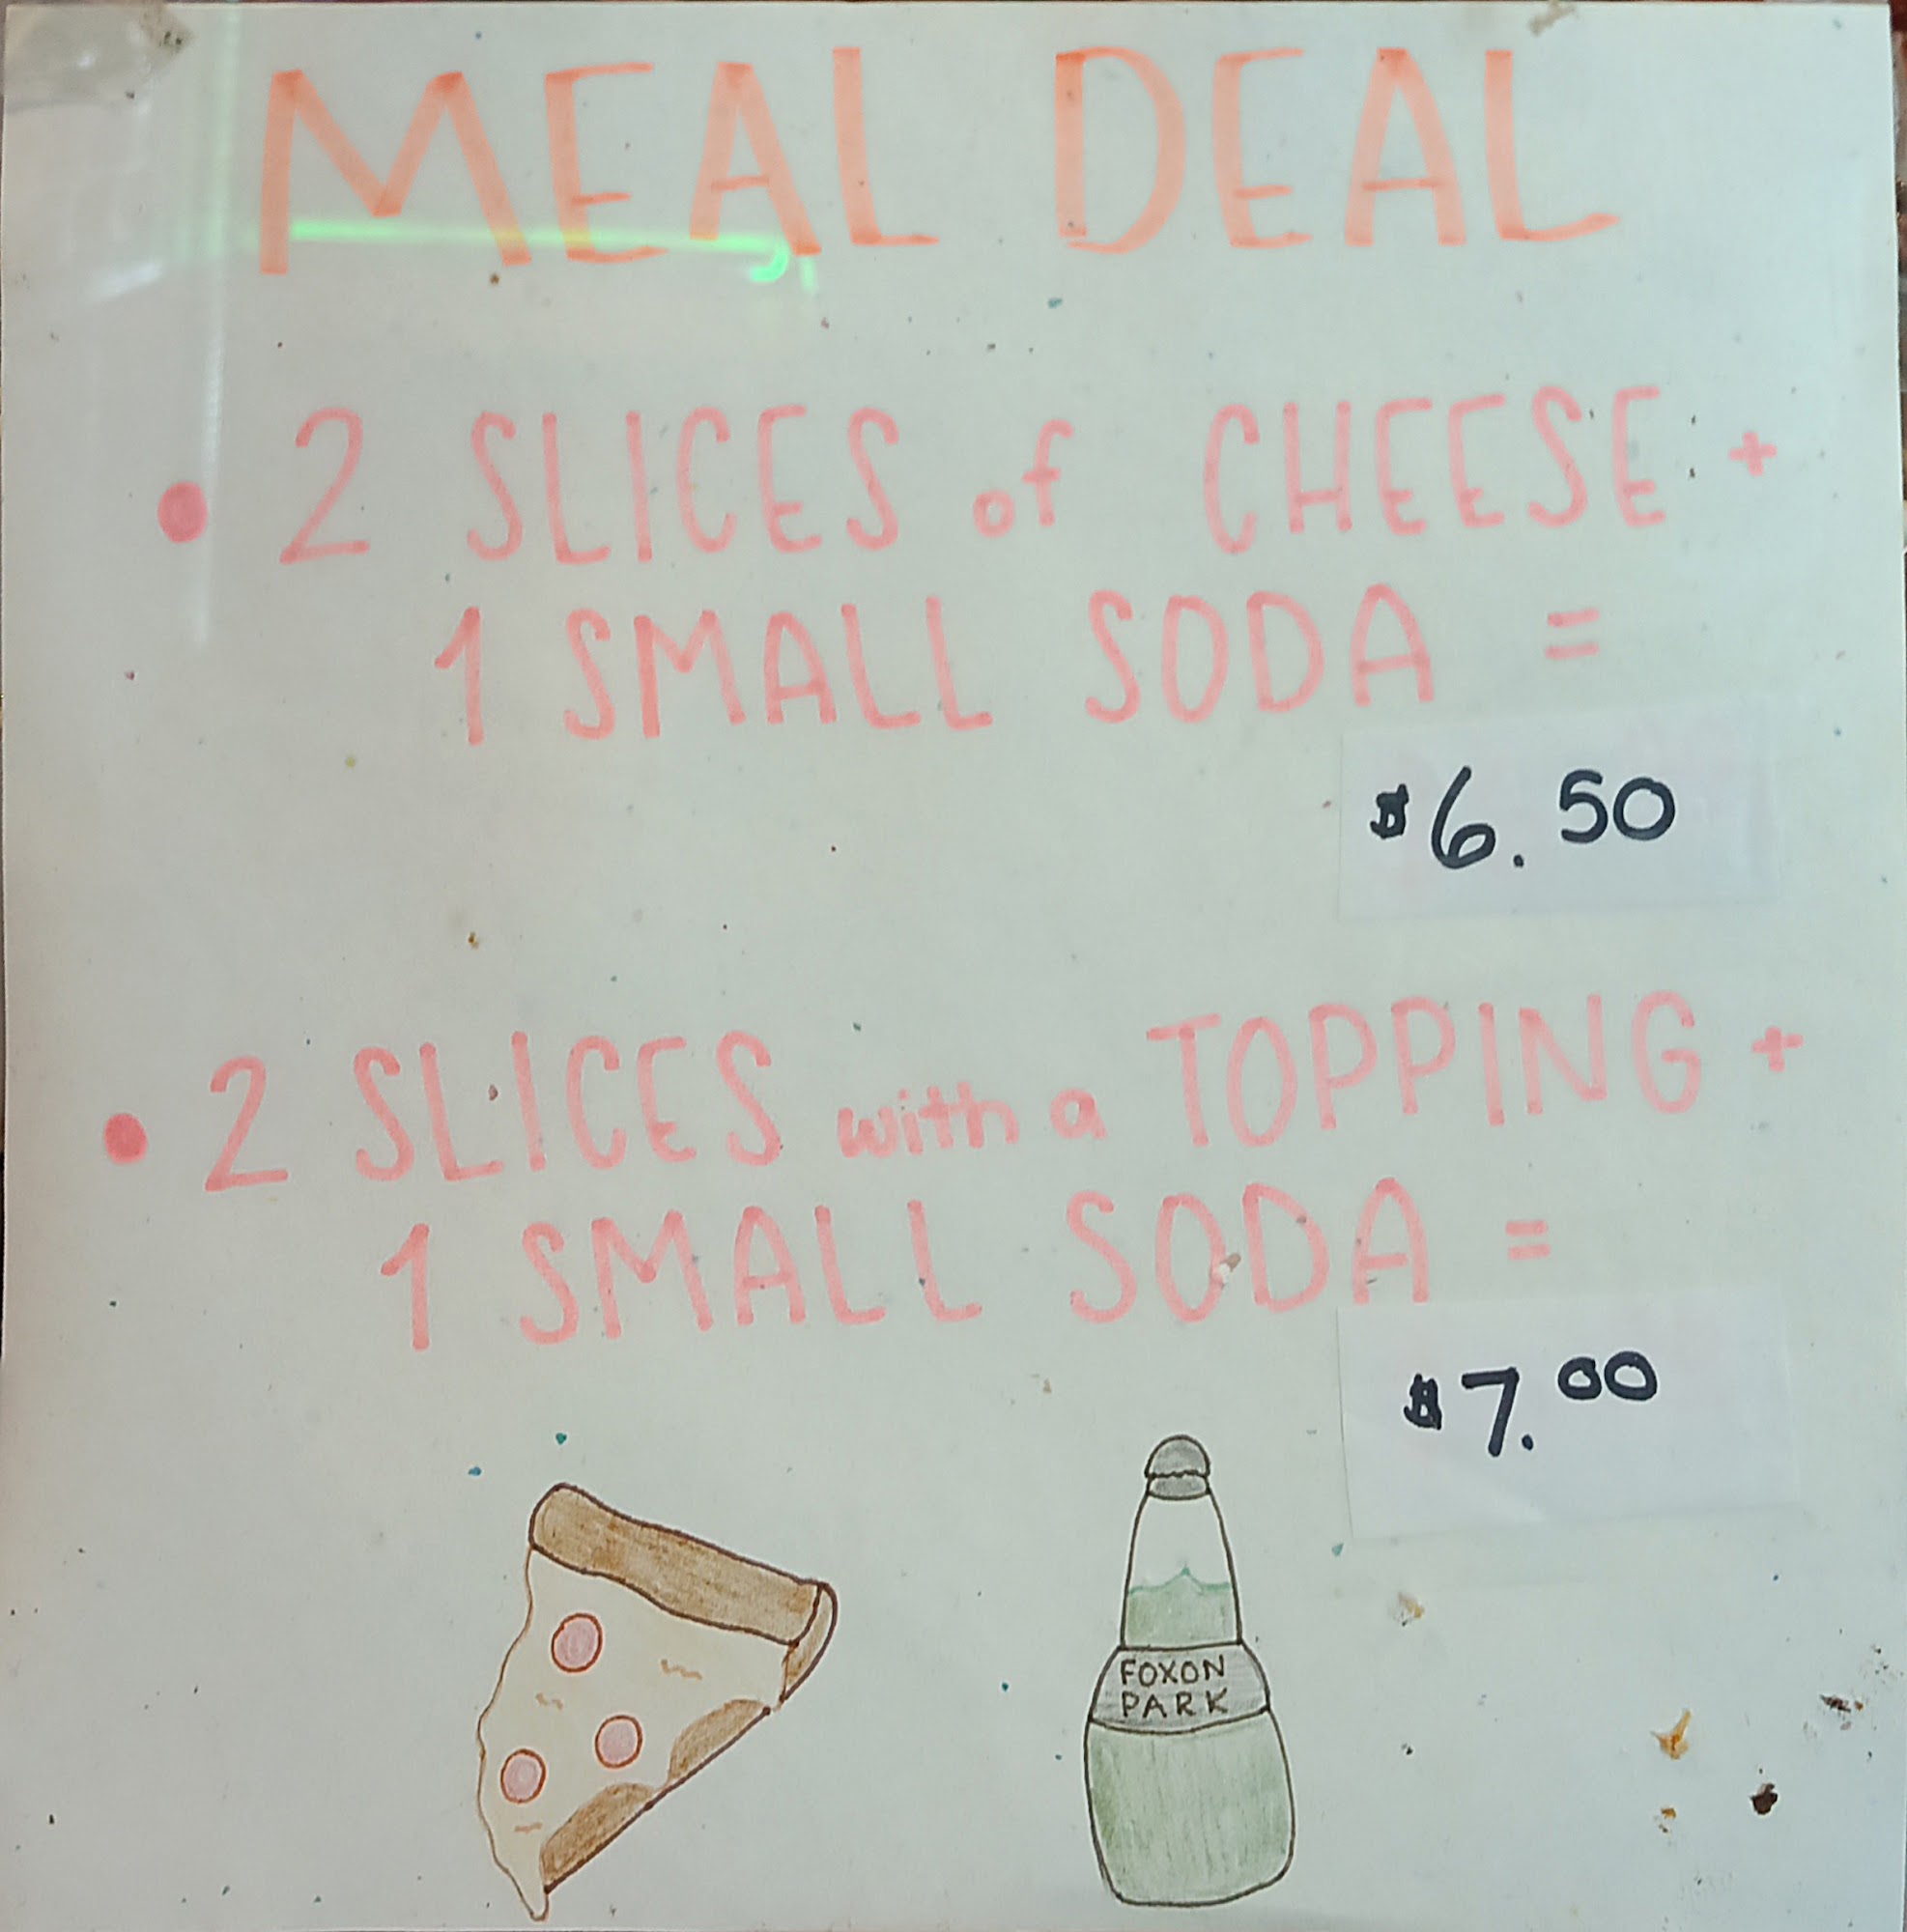 MEAL DEAL
• 2 SLICES of CHEESE +
1 SMALL SODA =
$6.50
• 2 SLICES with a TOPPING +
1 SMALL SODA =
$7.00
FOXON
PARK